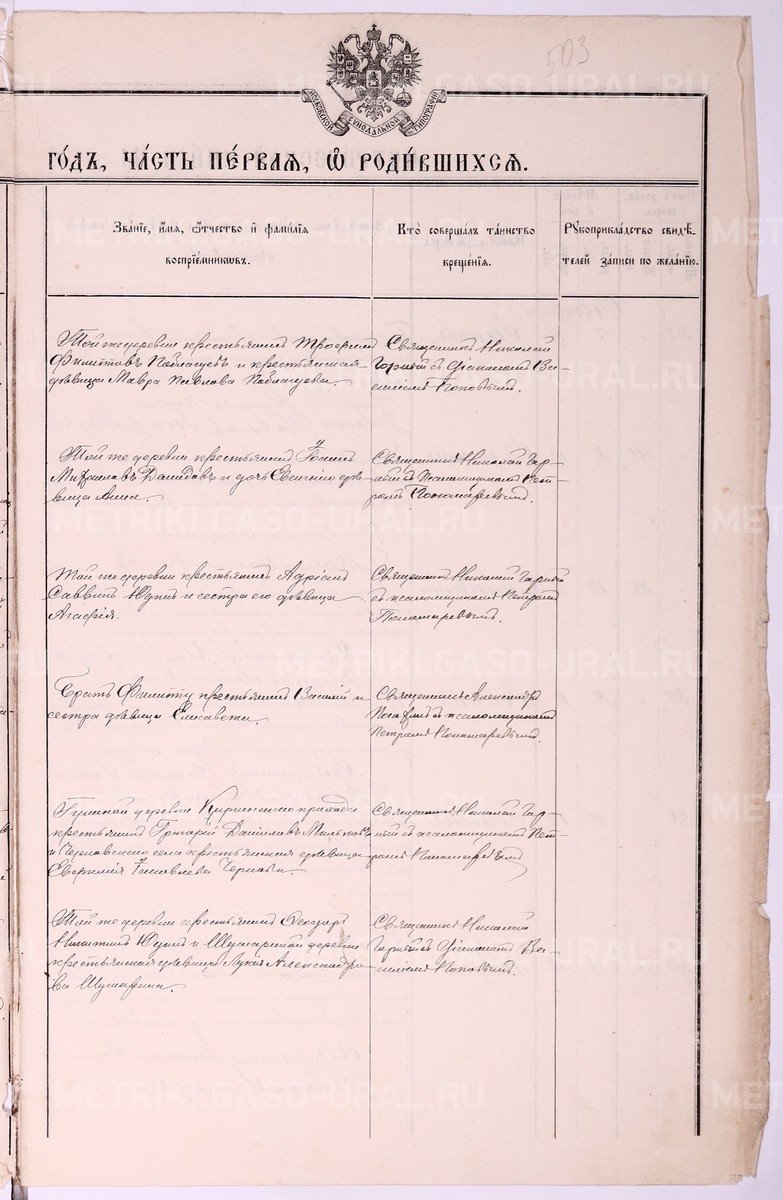 503
МОСКОВСКОЙ СѴНОДАЛЬНОЙ ТИПОГРАФІИ
ГО́ДЪ, ЧА́СТЬ ПЕ́РВАЯ, Ѡ҆ РОДИ́ВШИХСЯ.
Зва́нїе, и҆́мя, ѻ҆́тчество и҆ фами́лїя
воспрїе́мникѡвъ.
Кто̀ соверша́лъ та́инство
креще́нїя.
Рꙋкоприкла́дство свидѣ́-
телей за́писи по жела́нїю.
Той же деревни крестьянинъ Трофимъ
Филипповъ и крестьянская
дѣвица Мавра Павлова
Священникъ Николай
Горный съ Діакономъ Ва-
силіемъ Поповымъ.
Той же деревни крестьянинъ Іоаннъ
Давидовъ и дочь Евгенію дѣ-
вица Анна.
Священникъ Николай Гор-
ный съ Псаломщикомъ Пет-
ромъ Пономаревымъ.
Той же деревни крестьянинъ Адріанъ
Саввинъ Юдинъ и сестра его дѣвица
Агафія.
Священникъ Николай Горный
съ псаломщикомъ Петромъ
Пономаревымъ.
Братъ Филиппу крестьянинъ Василій и
сестра дѣвица Елисавета.
Священникъ Александръ
съ псаломщикомъ
Петромъ Пономаревымъ.
деревни прихода
крестьянинъ Григорій Даниловъ
и Черновскаго села крестьянская дѣвица
Евфимія Іаковлева Чернова.
Священникъ Николай Гор-
ный съ псаломщикомъ Пет-
ромъ Пономаревымъ
Той же деревни крестьянинъ Ѳеодоръ
Никитинъ Юдинъ и Шумарской деревни
крестьянская дѣвица Лукія Александро-
ва
Священникъ Николай
Горный съ Діакономъ Ва-
силіемъ Поповымъ.
METRIKI.GASO-URAL.RU